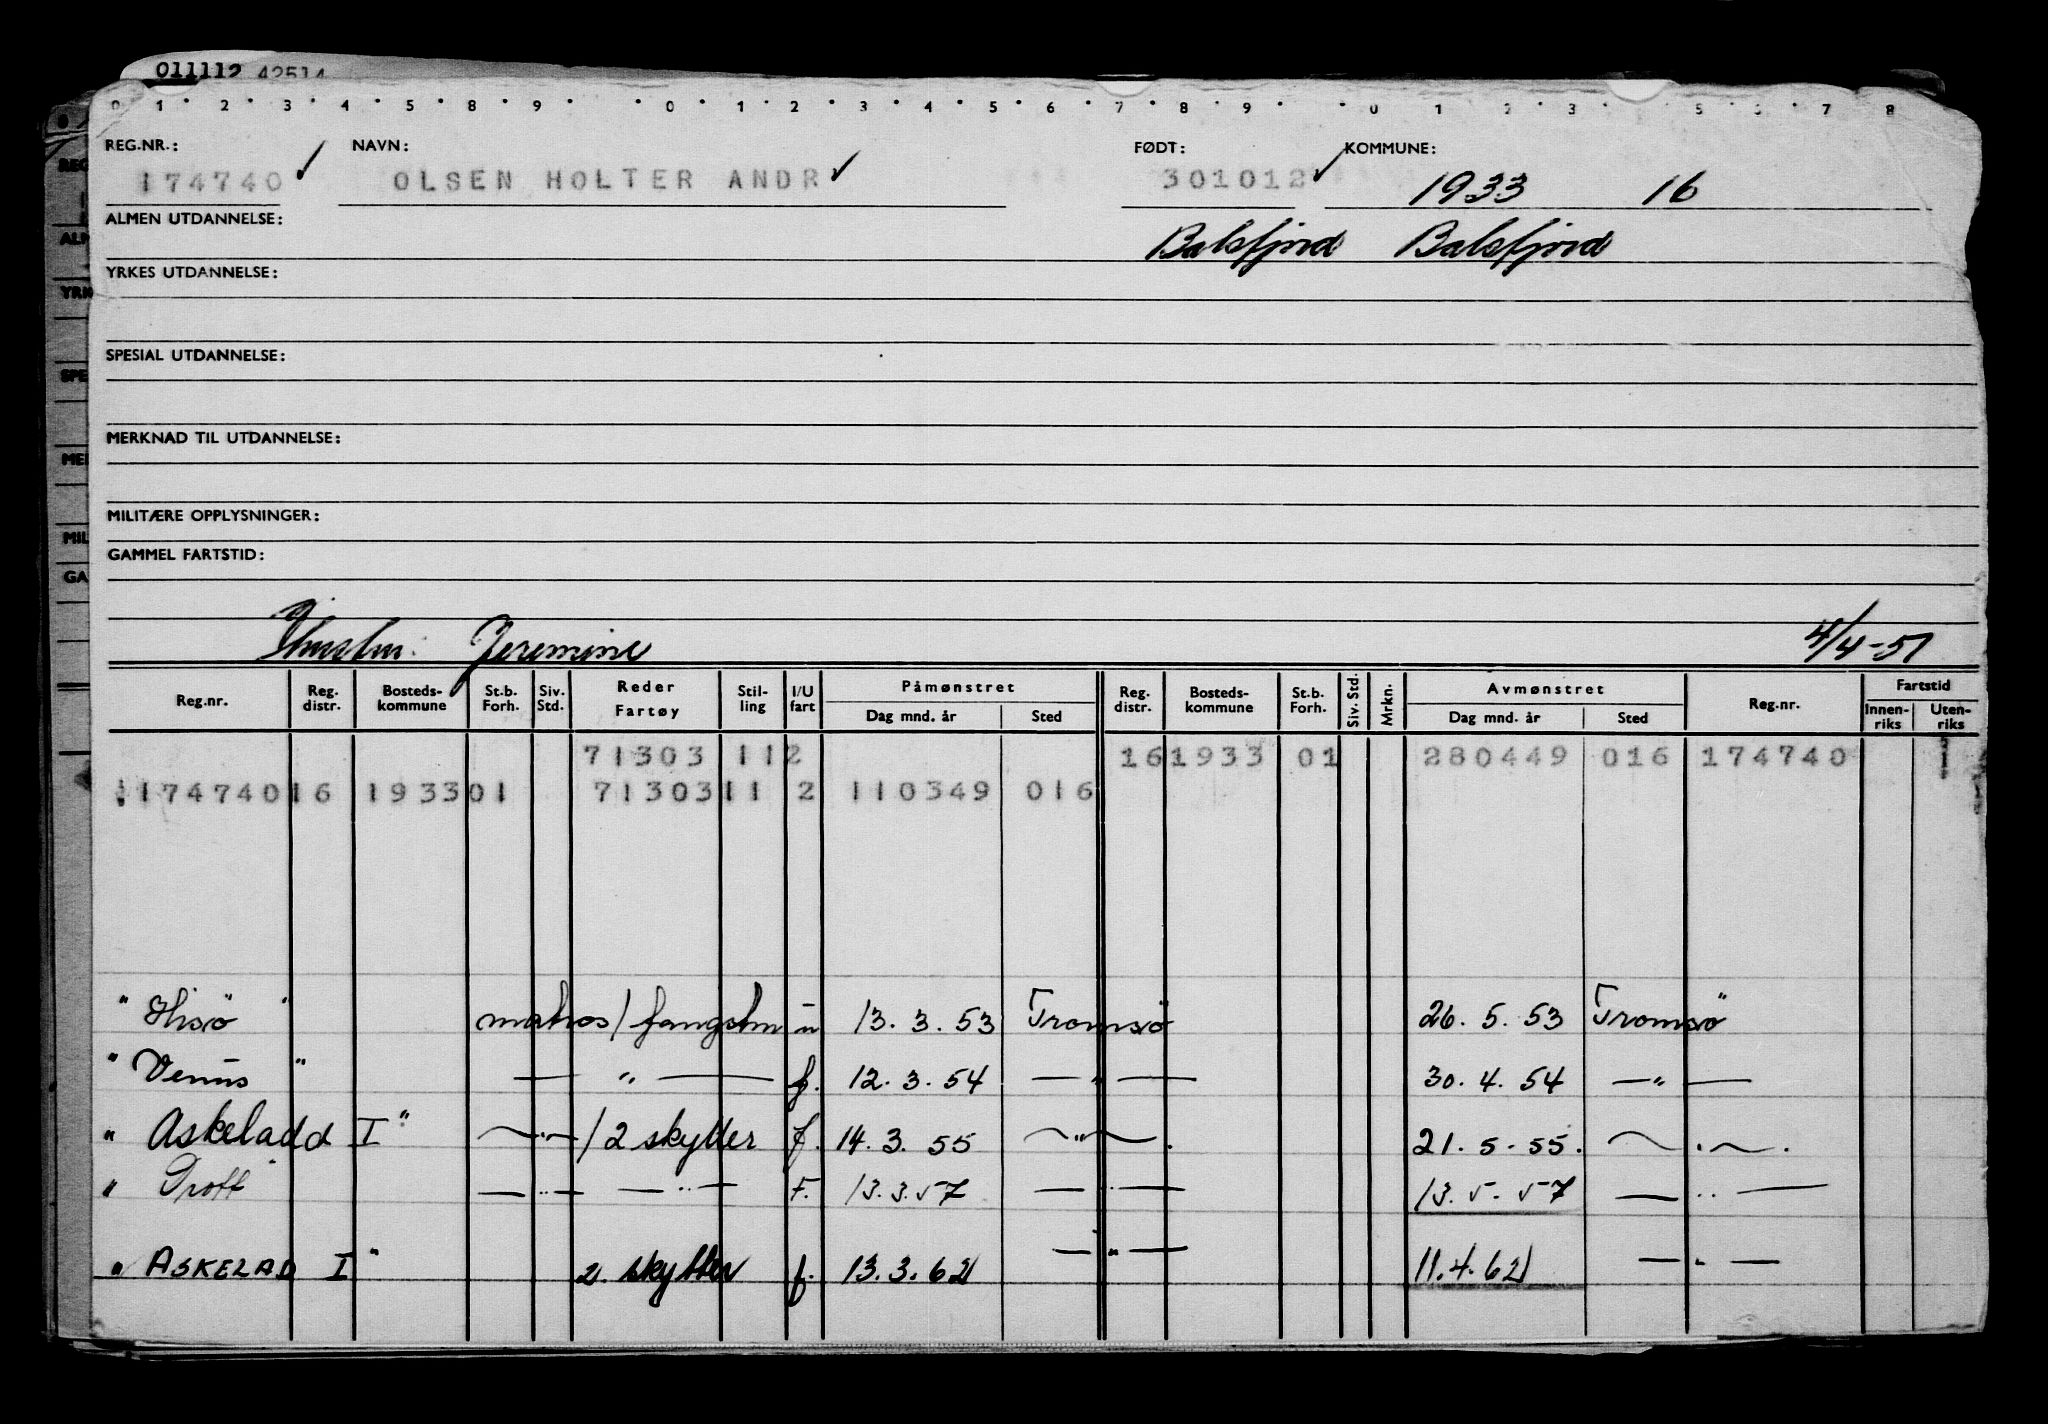 011112 42514
0 · 1 · 2 · 3 · 4 · 5 · 8 · 9 · · 0 · 1 · 2 · 3 · 4 · 5 · 6 · 7 · 8 · 9 · · 0 1 2 · 3 5 · 7 8
REG.NR.: NAVN: FØDT: KOMMUNE:
174740 ✓ OLSEN HOLTER ANDR ✓ 301012 ✓ 1933 16
ALMEN UTDANNELSE: Balsfjord Balsfjord
YRKES UTDANNELSE:
SPESIAL UTDANNELSE:
MERKNAD TIL UTDANNELSE:
MILITÆRE OPPLYSNINGER:
GAMMEL FARTSTID:
Jeremine 4/4-51
Reg.nr. Reg. distr. Bosteds-kommune St.b. Forh. Siv. Std. Reder Fartøy Stil-ling I/U fart Påmønstret Dag mnd. år Sted Reg. distr. Bosteds-kommune St.b. Forh. Siv. Std. Mrkn. Avmønstret Dag mnd. år Sted Reg.nr. Fartstid Innen-riks Uten-riks
71303 112 161933 01 280449 016 174740
174740 16 1933 01 71303 11 2 110349 016
" Hisö " matros / fangstm u 13. 3. 53 Tromsö 26. 5. 53 Tromsö
" Venus " — " — f. 12. 3. 54 — " — 30. 4. 54 — " —
" Askeladd I " — " — / 2 skytter f. 14. 3. 55 — " — . 21. 5 - 55. — " — .
" Trott " — " — — " — F. 13. 3. 57 — " — 13. 5. 57 — " —
" ASKELAD I " 2. skytter f. 13. 3. 62 — " — 11. 4. 62 — " —